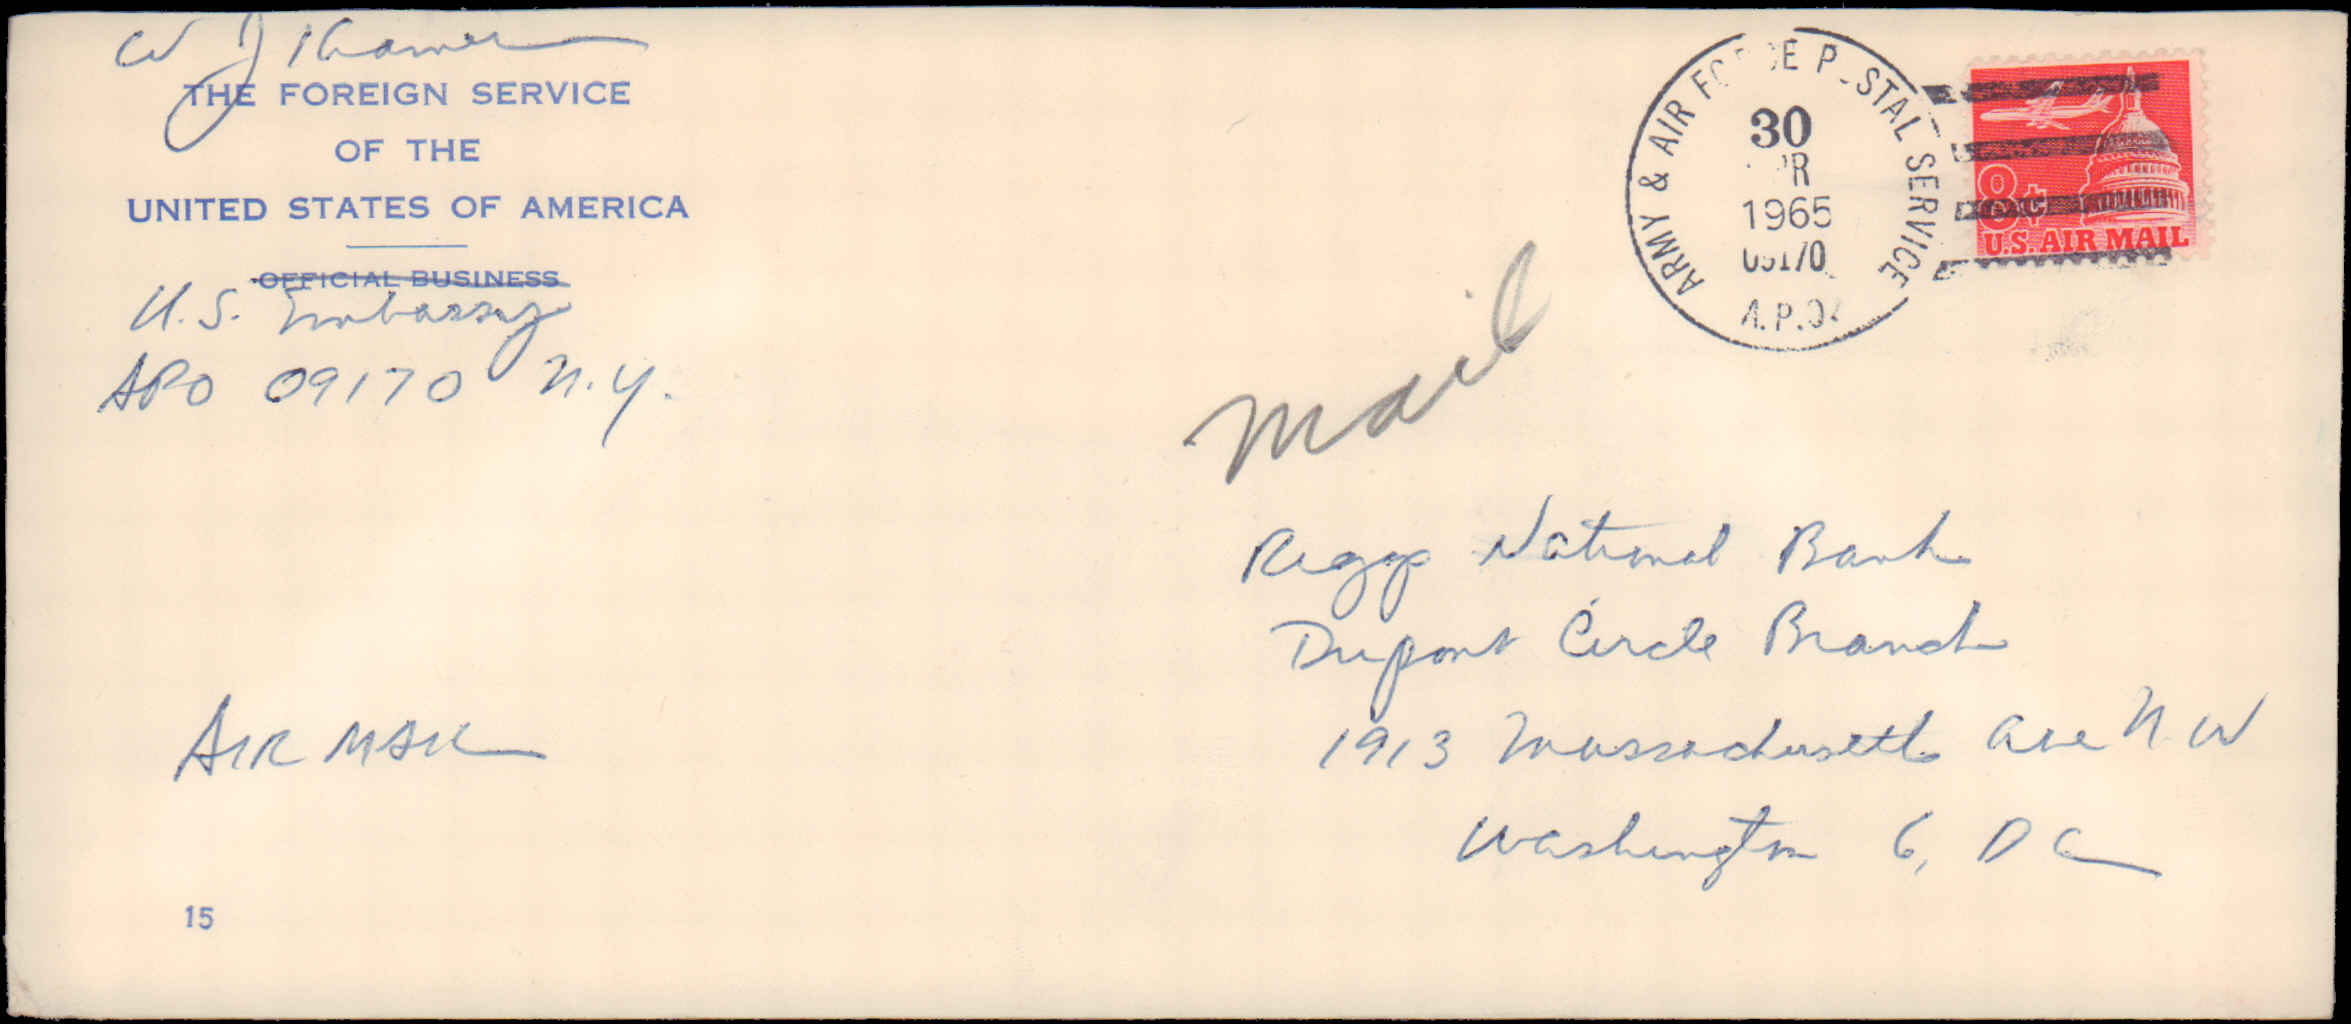 W J Kramer
THE FOREIGN SERVICE
OF THE
UNITED STATES OF AMERICA
OFFICIAL BUSINESS
U.S. Embassy
APO 09170 N.Y.
ARMY & AIR FORCE POSTAL SERVICE
30
APR
1965
09170
A.P.O.
8¢
U.S. AIR MAIL
Mail
Riggs National Bank
Dupont Circle Branch
1913 Massachusetts Ave N.W
Washington 6, DC
AIR MAIL
15